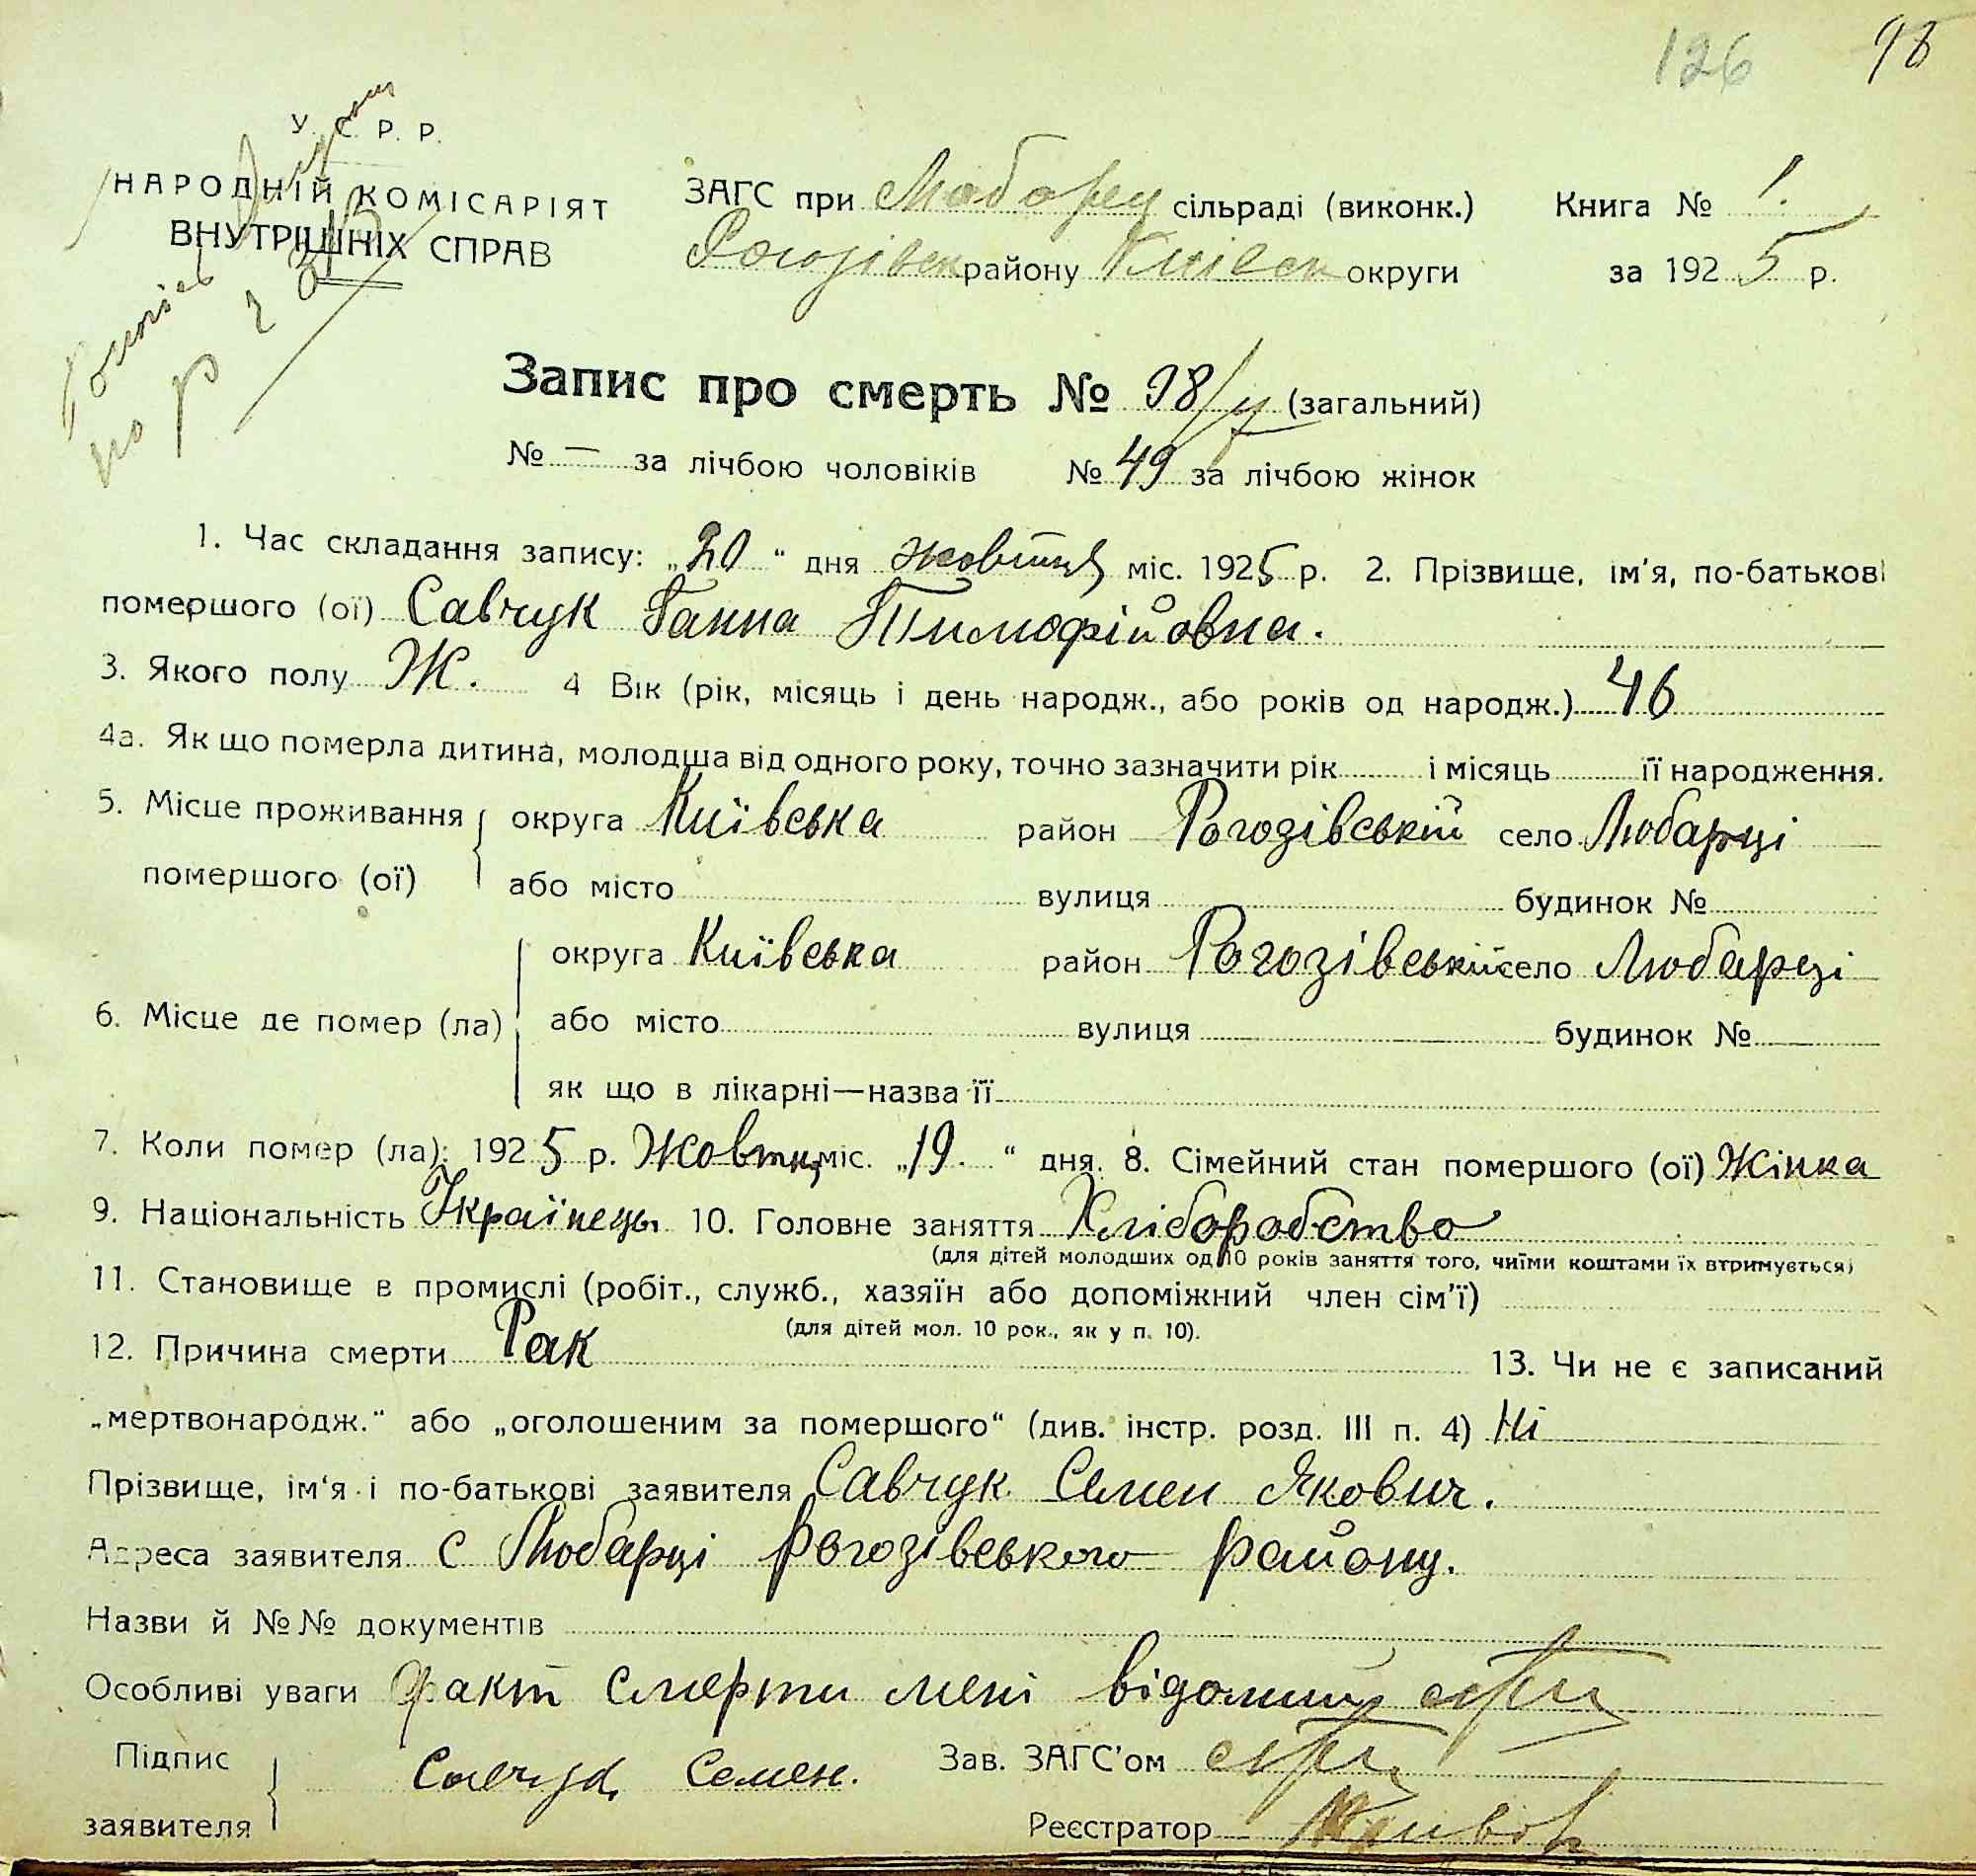 126 98
У. С. Р. Р.
НАРОДНІЙ КОМІСАРІЯТ
ВНУТРІШНІХ СПРАВ
ЗАГС при Любарец сільраді (виконк.) Книга № 1.
Рогозівськ району Київськ округи за 1925 р.
Запис про смерть № 98/у (загальний)
№ — за лічбою чоловіків № 49 за лічбою жінок
1. Час складання запису: „20“ дня жовтня міс. 1925 р. 2. Прізвище, ім'я, по-батькові
помершого (ої) Савчук Ганна Тимофійовна.
3. Якого полу Ж. 4 Вік (рік, місяць і день народж., або років од народж.) 46
4а. Як що померла дитина, молодша від одного року, точно зазначити рік і місяць її народження.
5. Місце проживання округа Київська район Рогозівський село Любарці
помершого (ої) або місто вулиця будинок №
округа Київська район Рогозівський село Любарці
6. Місце де помер (ла) або місто вулиця будинок №
як що в лікарні—назва її
7. Коли помер (ла): 1925 р. Жовтня міс. „19.“ дня. 8. Сімейний стан помершого (ої) Жінка
9. Національність Українець 10. Головне заняття Хліборобство
(для дітей молодших од 10 років заняття того, чиїми коштами їх втримується)
11. Становище в промислі (робіт., служб., хазяїн або допоміжний член сім'ї)
(для дітей мол. 10 рок., як у п. 10).
12. Причина смерти Рак 13. Чи не є записаний
„мертвонародж.“ або „оголошеним за помершого“ (див. інстр. розд. III п. 4) Ні
Прізвище, ім'я і по-батькові заявителя Савчук Семен Якович.
Адреса заявителя С Любарці Рогозівського району.
Назви й №№ документів
Особливі уваги Факт смерти мені відомий
Підпис Савчук Семен. Зав. ЗАГС'ом
заявителя Реєстратор